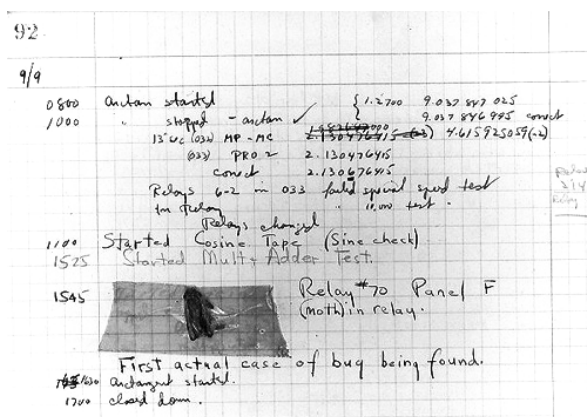 92
9/9
0800 arctan started { 1.2700 9.037 847 025
1000 " stopped - arctan ✓ 9.037 846 995 correct
13"uc (032) MP - MC 2.130476415 (-2) 4.615925059(-2)
(033) PRO 2 2.130476415
correct 2.130676415
Relays 6-2 in 033 failed special speed test
in Relay " 11,000 test.
Relays changed
1100 Started Cosine Tape (Sine check)
1525 Started Mult + Adder Test.
1545 Relay #70 Panel F
(moth) in relay.
First actual case of bug being found.
1630 arctangent started.
1700 closed down.